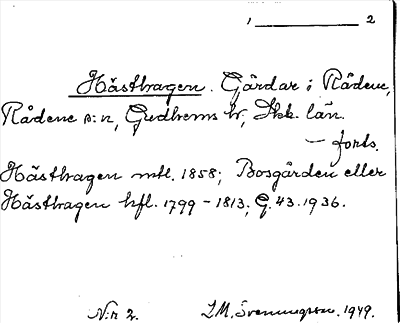 1 ______ 2
Hästhagen. Gårdar i Rådene,
Rådene s:n, Gudhems hr, Skb. län.
— forts.
Hästhagen mtl. 1858; Bosgården eller
Hästhagen hfl. 1799 - 1813; G. 43. 1936.
N:r 2. I.M. Svenningson. 1949.